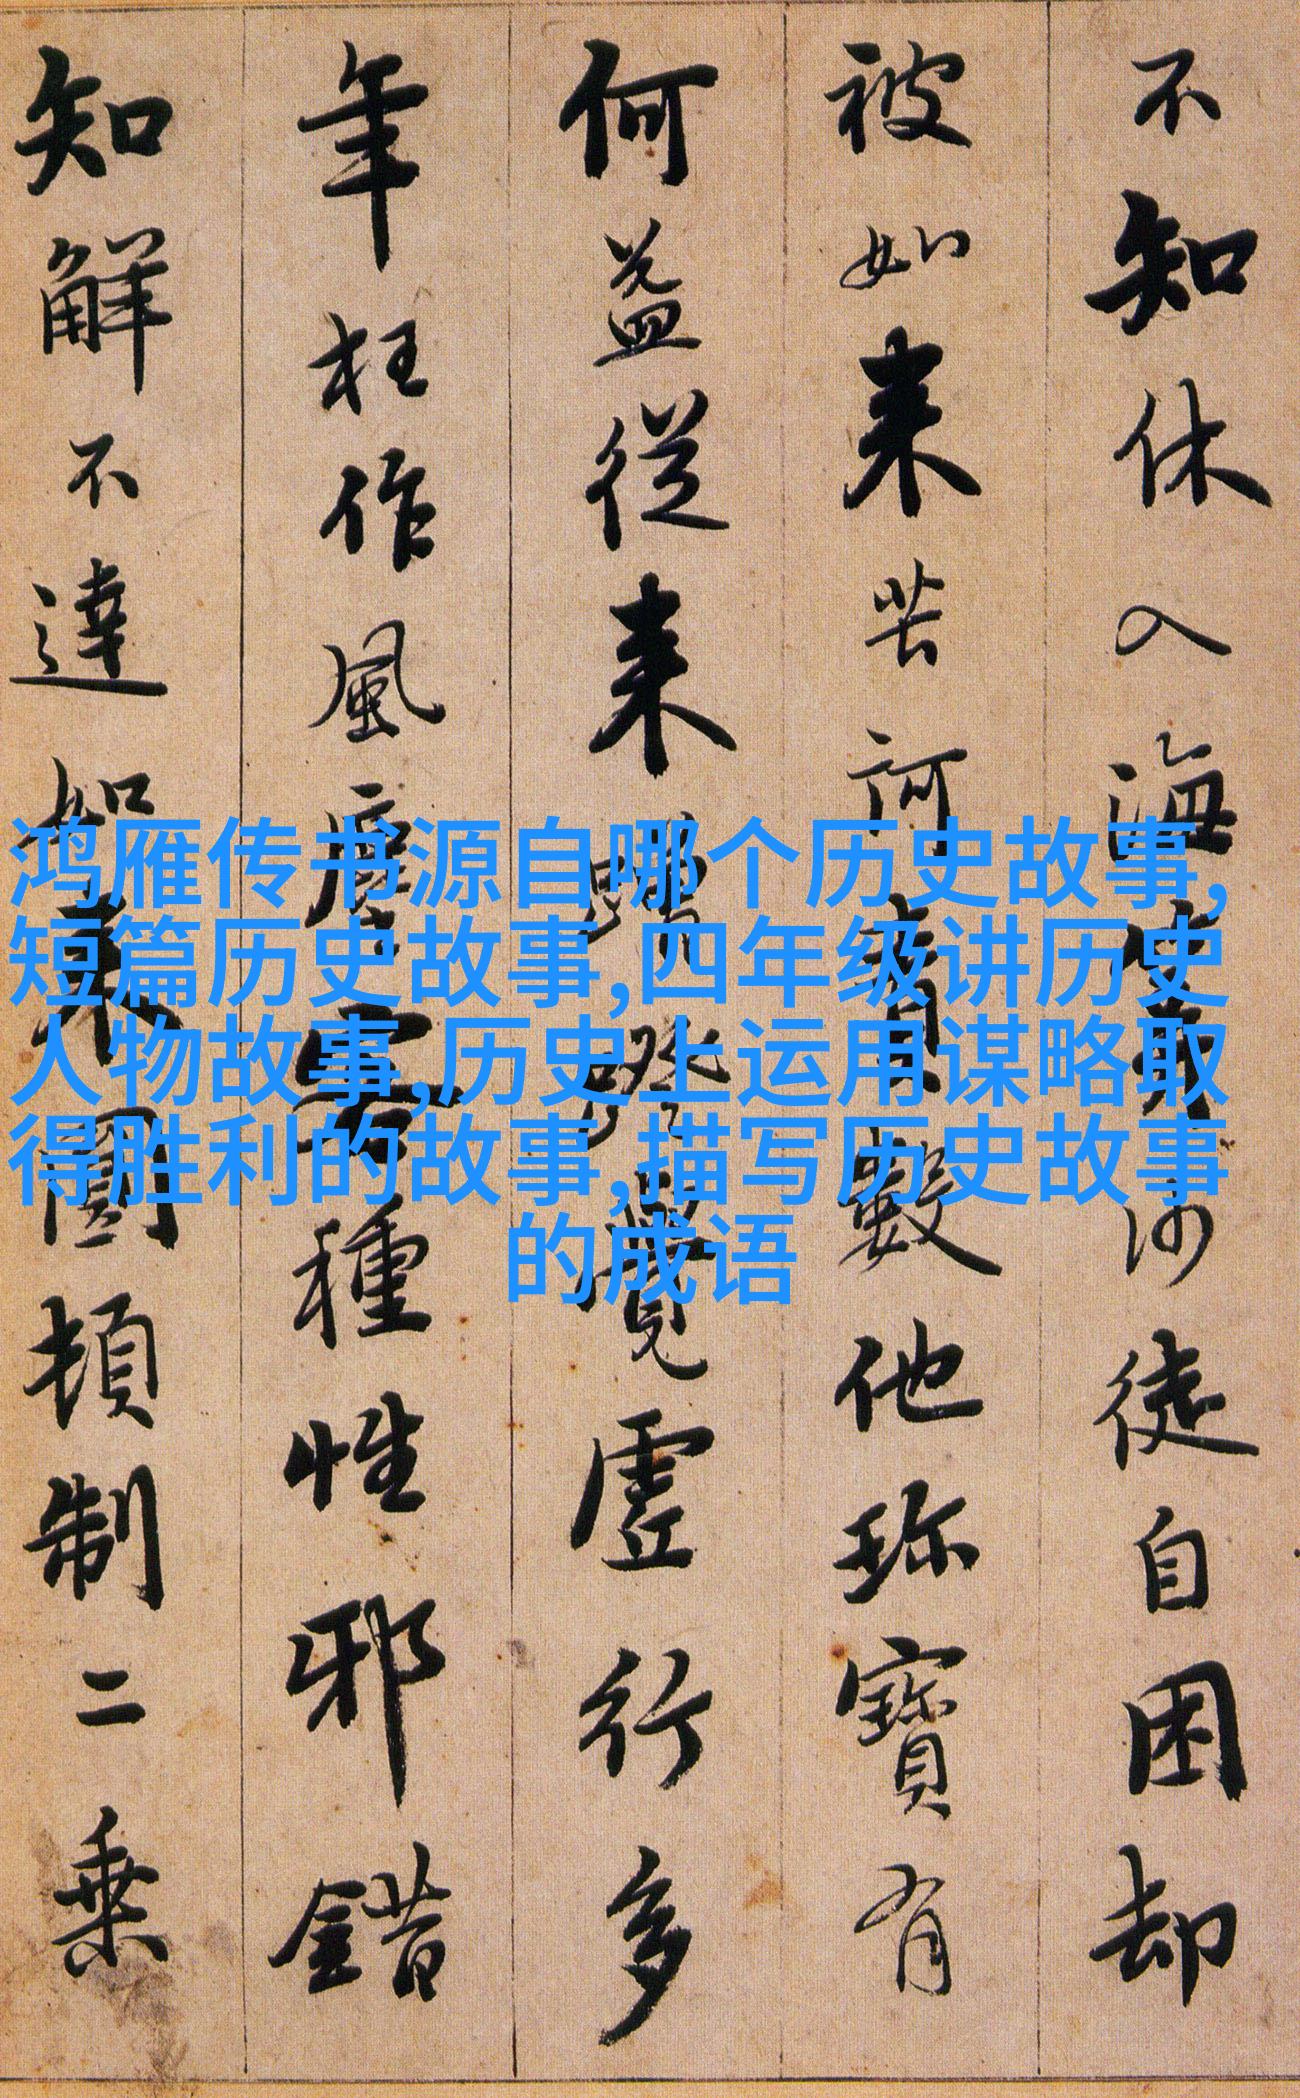 不知休入海算沙徒自困却
被如来苦訶責數他珎寶有
何益從来蹭蹬覺虛行多
年枉作風塵客種性邪錯
知解不達如来圓頓制二乗
鸿雁传书源自哪个历史故事,
短篇历史故事,四年级讲历史
人物故事,历史上运用谋略取
得胜利的故事,描写历史故事
的成语